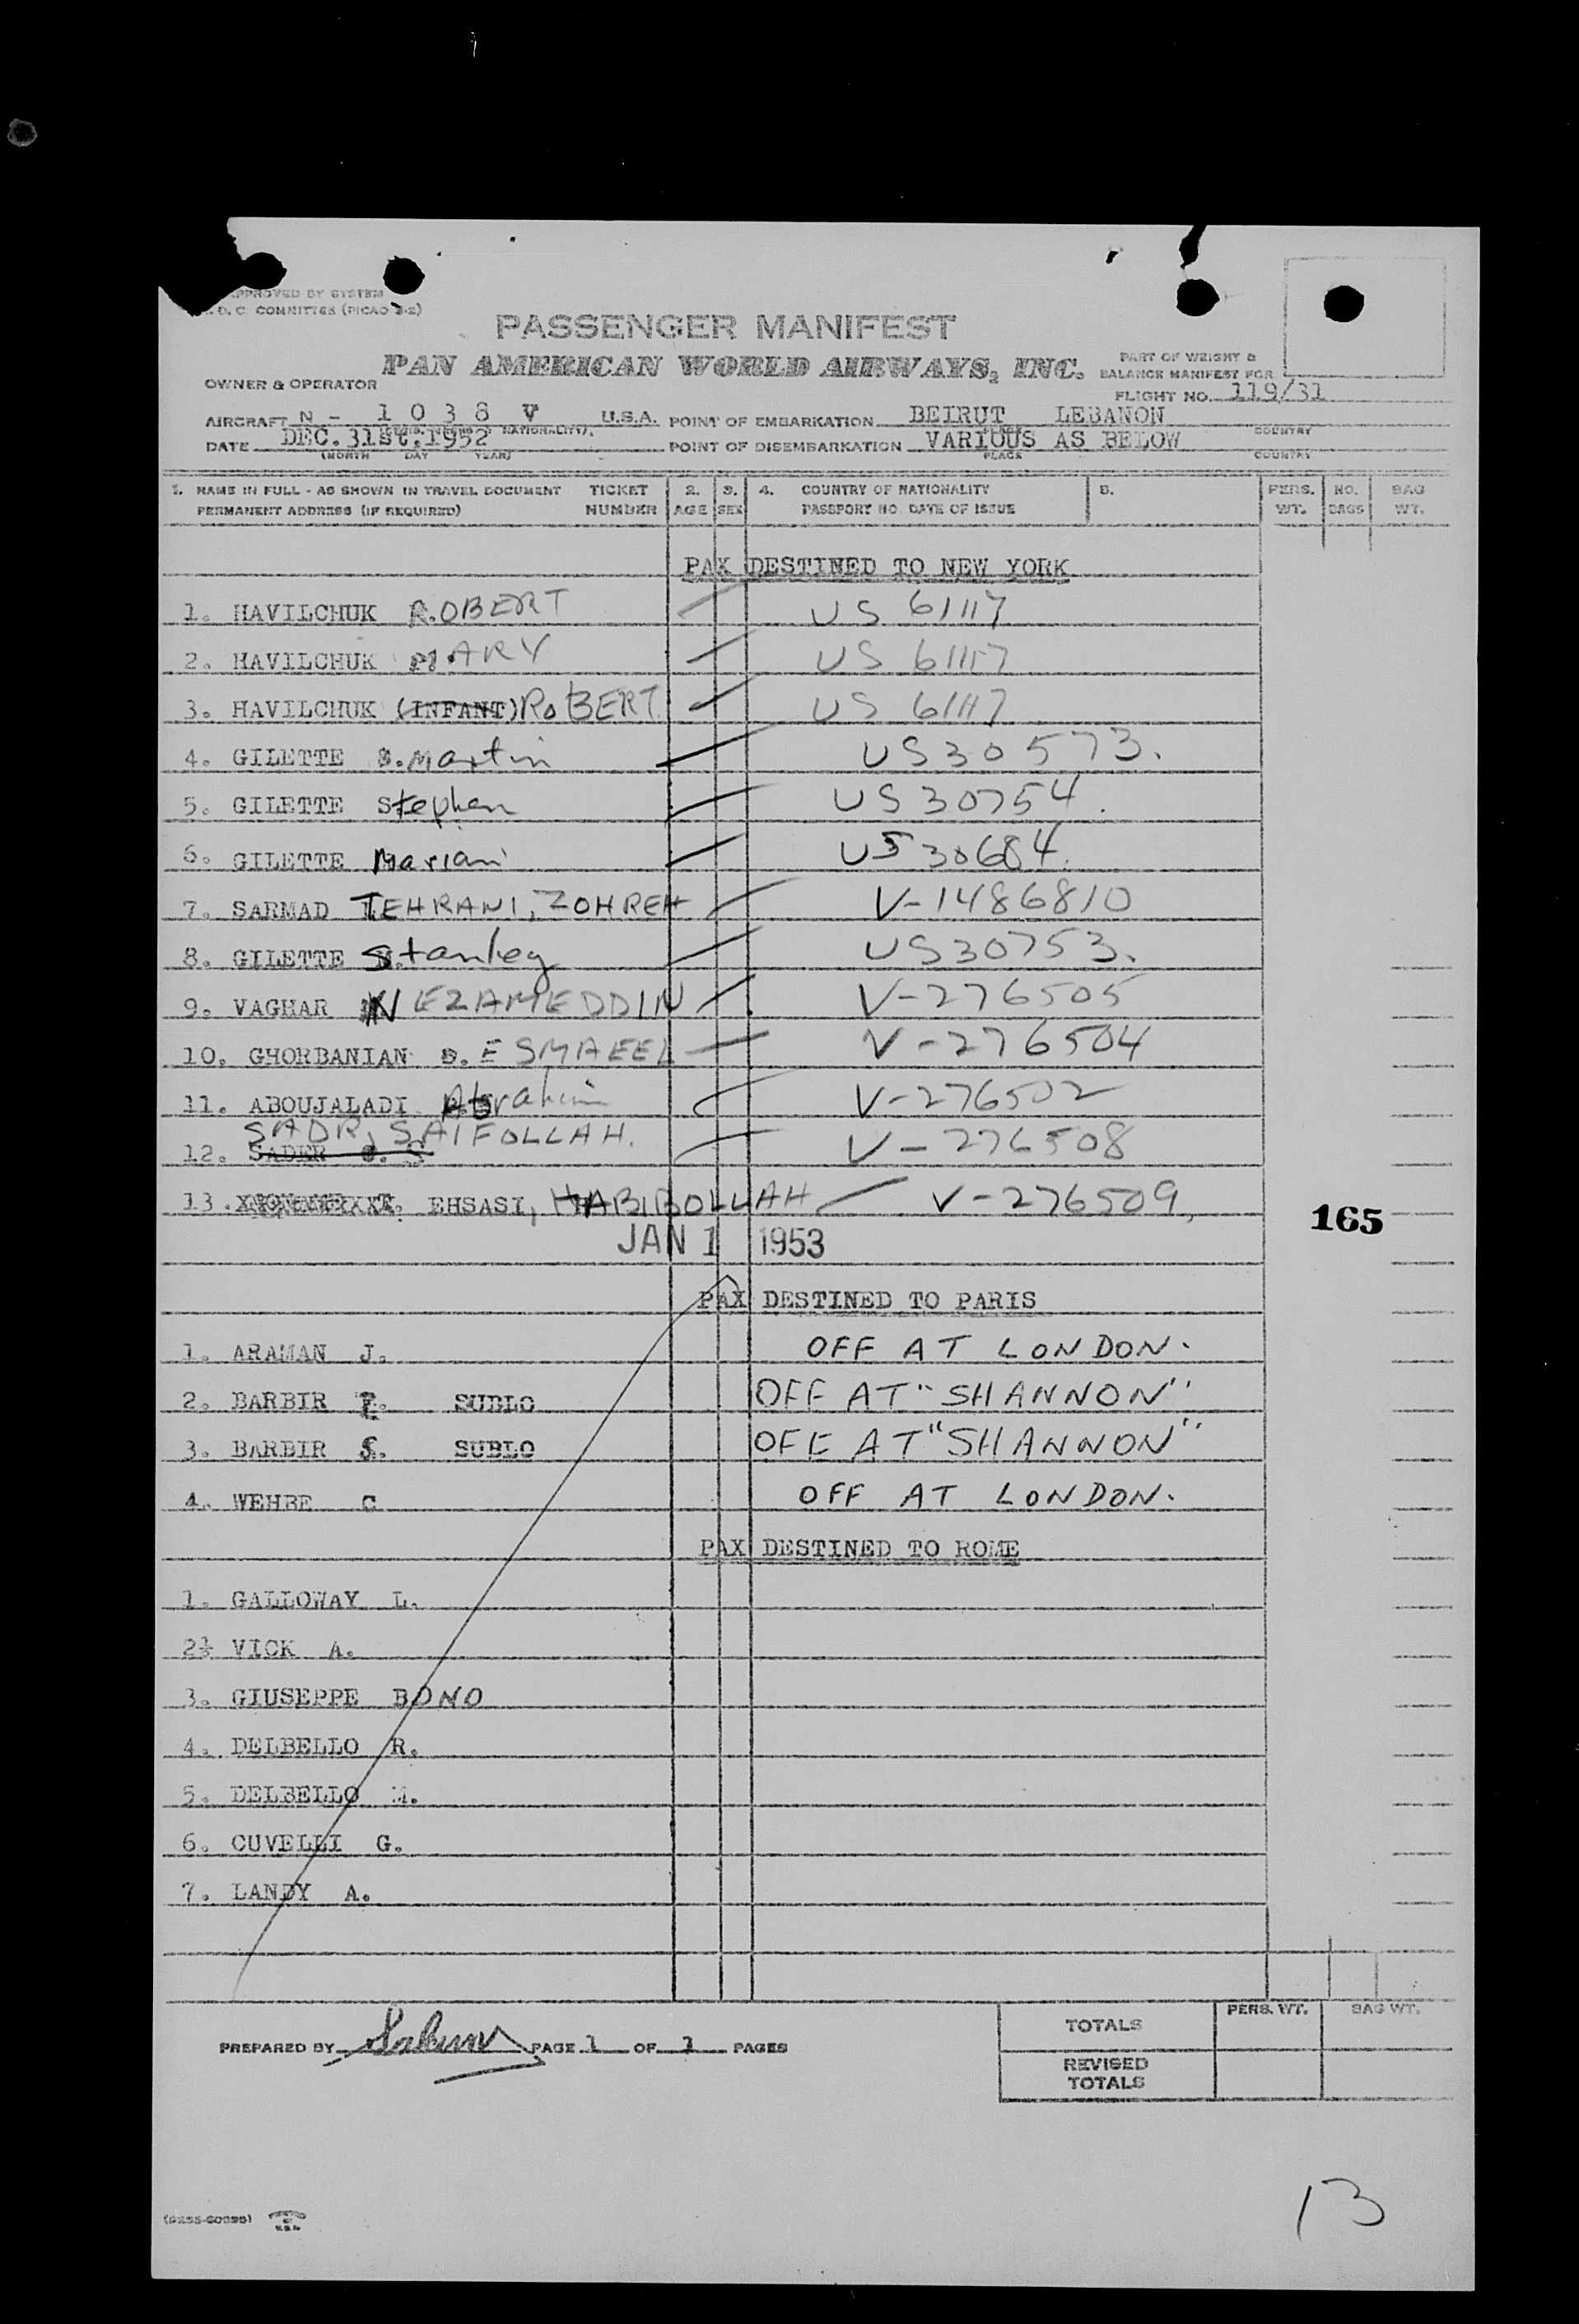 APPROVED BY SYSTEM
D. C. COMMITTEE (PICAO 2-2)
PASSENGER MANIFEST
PAN AMERICAN WORLD AIRWAYS, INC.
PART OF WEIGHT &
BALANCE MANIFEST FOR
OWNER & OPERATOR
FLIGHT NO. 119/31
AIRCRAFT N - 1 0 3 8 V U.S.A. POINT OF EMBARKATION BEIRUT LEBANON
NATIONALITY) COUNTRY
DATE DEC. 31st. 1952 POINT OF DISEMBARKATION VARIOUS AS BELOW
(MONTH DAY YEAR) PLACE COUNTRY
1. NAME IN FULL - AS SHOWN IN TRAVEL DOCUMENT TICKET 2. 3. 4. COUNTRY OF NATIONALITY 5. PERS. NO. BAG
PERMANENT ADDRESS (IF REQUIRED) NUMBER AGE SEX PASSPORT NO. DATE OF ISSUE WT. BAGS WT.
PAX DESTINED TO NEW YORK
1. HAVILCHUK R.OBERT US 61117
2. HAVILCHUK M.ARY US 61117
3. HAVILCHUK (INFANT) ROBERT US 61117
4. GILETTE S. Martin US 30573.
5. GILETTE Stephen US 30754.
6. GILETTE Mariam US 30684.
7. SARMAD TEHRANI, ZOHREH V-1486810
8. GILETTE Stanley US 30753.
9. VAGHAR NEZAMEDDIN V-276505
10. GHORBANIAN ESMAEEL V-276504
11. ABOUJALADI Abrahim V-276502
SADR, SAIFOLLAH.
12. SADER V-276508
13. EHSASI, HABIBOLLAH V-276509
165
JAN 1 1953
PAX DESTINED TO PARIS
1. ARAMAN J. OFF AT LONDON.
2. BARBIR SUBLO OFF AT "SHANNON"
3. BARBIR SUBLO OFF AT "SHANNON"
4. WEHBE C OFF AT LONDON.
PAX DESTINED TO ROME
1. GALLOWAY L.
2. VICK A.
3. GIUSEPPE BONO
4. DELBELLO R.
5. DELBELLO M.
6. CUVELLI G.
7. LANDY A.
PERS. WT. BAG WT.
TOTALS
PREPARED BY PAGE 1 OF 1 PAGES
REVISED
TOTALS
13